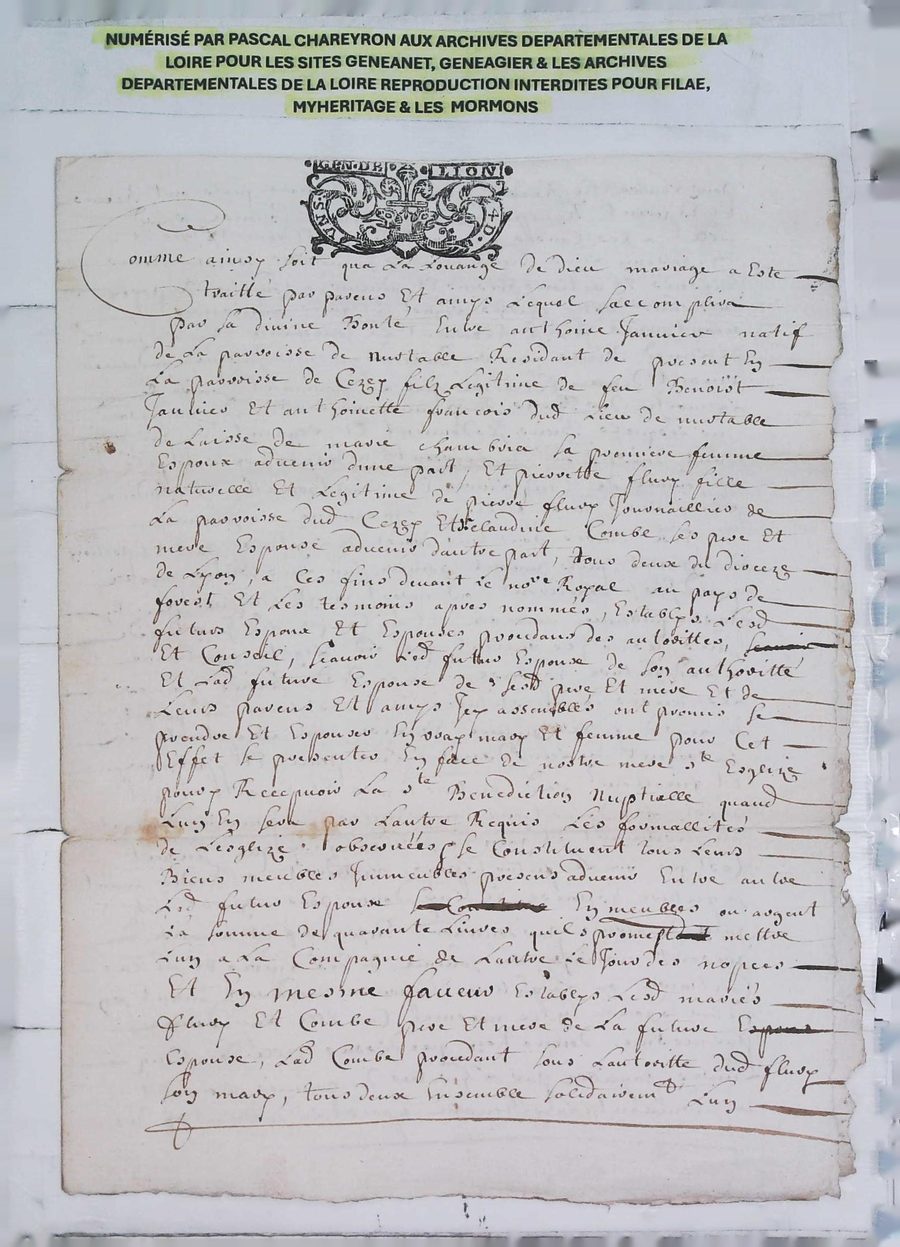 NUMÉRISÉ PAR PASCAL CHAREYRON AUX ARCHIVES DEPARTEMENTALES DE LA
LOIRE POUR LES SITES GENEANET, GENEAGIER & LES ARCHIVES
DEPARTEMENTALES DE LA LOIRE REPRODUCTION INTERDITES POUR FILAE,
MYHERITAGE & LES MORMONS
GEN.DE LION
UN S 4 D.
Comme ainsy soit qua La Louange de dieu mariage a Este
traitté par parens Et amys Lequel saccomplira
par sa divine Bonté, Entre anthoine Jannier natif
de La parroisse de Residant de present En
La parroisse de Cezey filz Legitime de feu Benoist
Jannier Et anthoinette francois dud Lieu de
de Laisse de marie chambria sa premiere femme
Espoux advenir dune part, Et pierrette flury fille
naturelle Et Legitime de pierre flury Journaillier de
La parroisse dud Cezey Et claudine Combe ses pere Et
mere Espouse advenir dautre part, tous deux du dioceze
de Lyon, a Ces fins devant Le nore Royal au pays de
forest Et Les tesmoins apres nommés, Establys Lesd
futurs Espoux Et Espouses procedans des autorittes,
Et Conseil, scavoir Led futur Espoux de son authoritté
Et Lad future Espouse de sesd pere Et mere Et de
Leurs parens Et amys Jcy assemblés ont promis se
prendre Et Espouser En vray mary Et femme pour Cet
Effet se presenter En face de nostre mere ste Esglize
pour y Recepvoir La ste Benediction Nuptialle quand
Lun En sera par Lautre Requis Les formallités
de Lesglize observéés, se Constituent tous Leurs
Biens meubles Jmmeubles presens advenir Entre autre
Led futur Espoux En meubles ou argent
La somme de quarante Livres quils promest mettre
Lun a La Compagnie de Lautre Le Jour des nopces
Et En mesme faveur Establys Lesd mariés
flury Et Combe pere Et mere de La future
Espouse, Lad Combe procedant sous Lautoritte dud flury
son mary, tous deux Ensemble solidairemt Lun